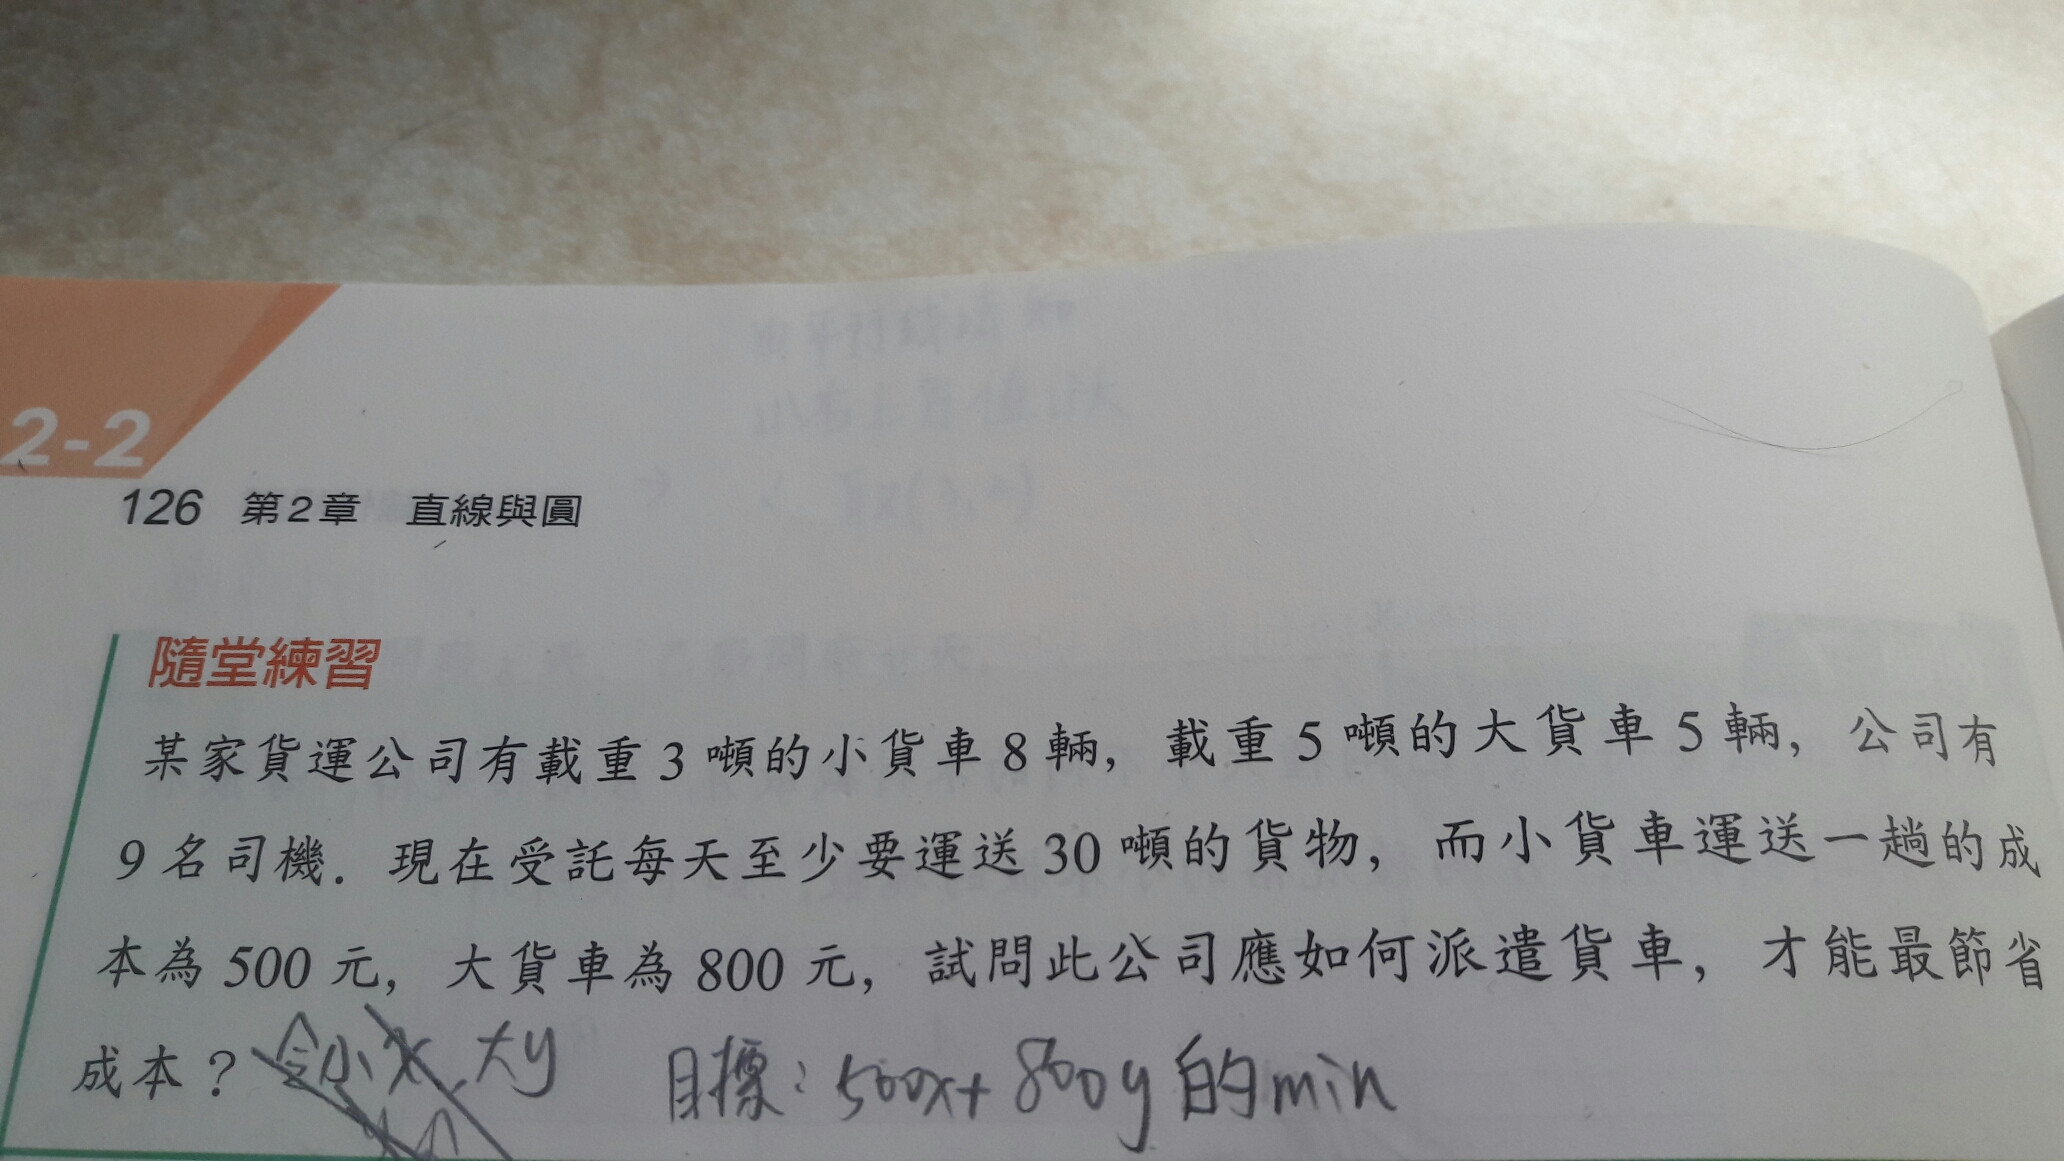 2-2
126 第2章 直線與圓
隨堂練習
某家貨運公司有載重3噸的小貨車8輛，載重5噸的大貨車5輛，公司有
9名司機．現在受託每天至少要運送30噸的貨物，而小貨車運送一趟的成
本為500元，大貨車為800元，試問此公司應如何派遣貨車，才能最節省
成本？ 令小x，大y 目標：500x+800y的min